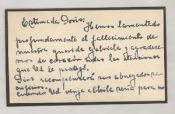 Estimada Doris: Hemos lamentado
profundamente el fallecimiento de
nuestro querido Gabriel y agradece
mos de corazón todas las atenciones
que Ud le prodigó.
Dios recompensará sus abnegados
Ud tenga